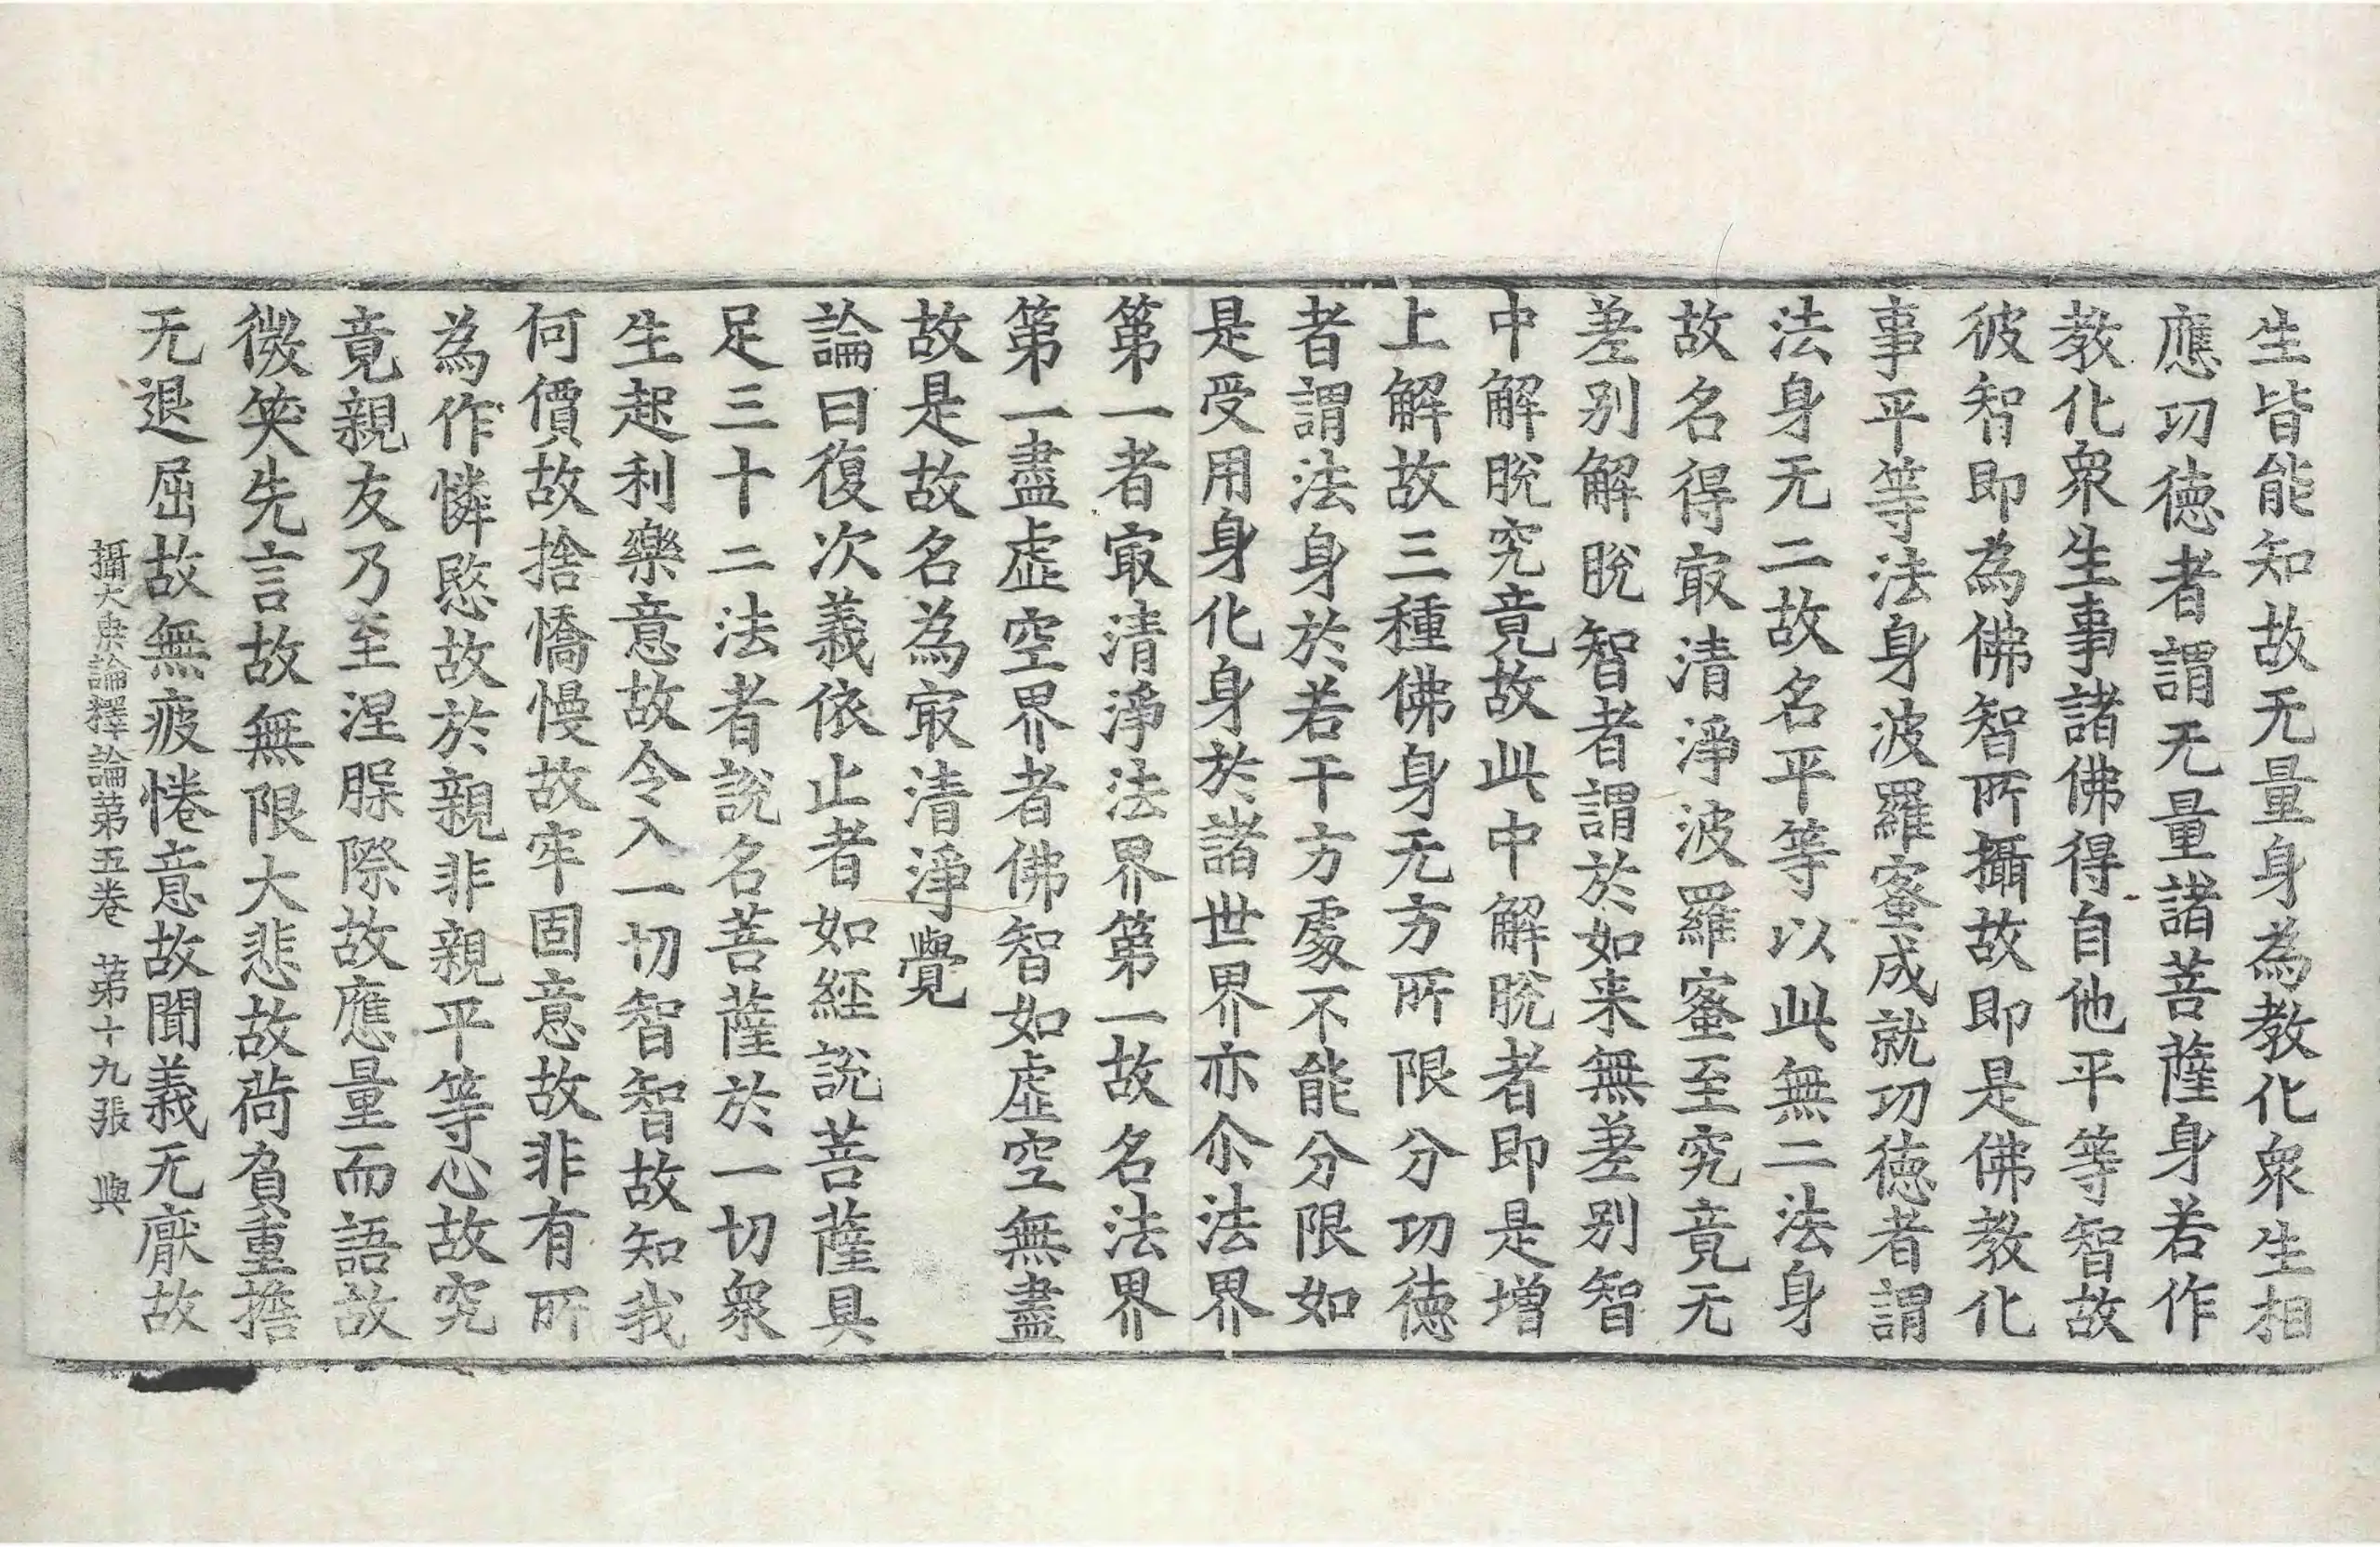 生皆能知故无量身為教化衆生相
應功德者謂无量諸菩薩身若作
教化衆生事諸佛得自他平等智故
彼智即為佛智所攝故即是佛教化
事平等法身波羅蜜成就功德者謂
法身无二故名平等以此無二法身
故名得㝡清淨波羅蜜至究竟无
差别解脫智者謂於如来無差别智
中解脫究竟故此中解脫者即是增
上解故三種佛身无方所限分功德
者謂法身於若干方處不能分限如
是受用身化身於諸世界亦尒法界
第一者㝡清淨法界第一故名法界
第一盡虛空界者佛智如虛空無盡
故是故名為㝡清淨覺
論曰復次義依止者如經說菩薩具
足三十二法者說名菩薩於一切衆
生起利樂意故令入一切智智故知我
何價故捨憍慢故牢固意故非有所
為作憐愍故於親非親平等心故究
竟親友乃至涅槃際故應量而語故
微笑先言故無限大悲故荷負重擔
无退屈故無疲惓意故聞義无厭故
攝大乗論釋論第五卷 第十九張 與